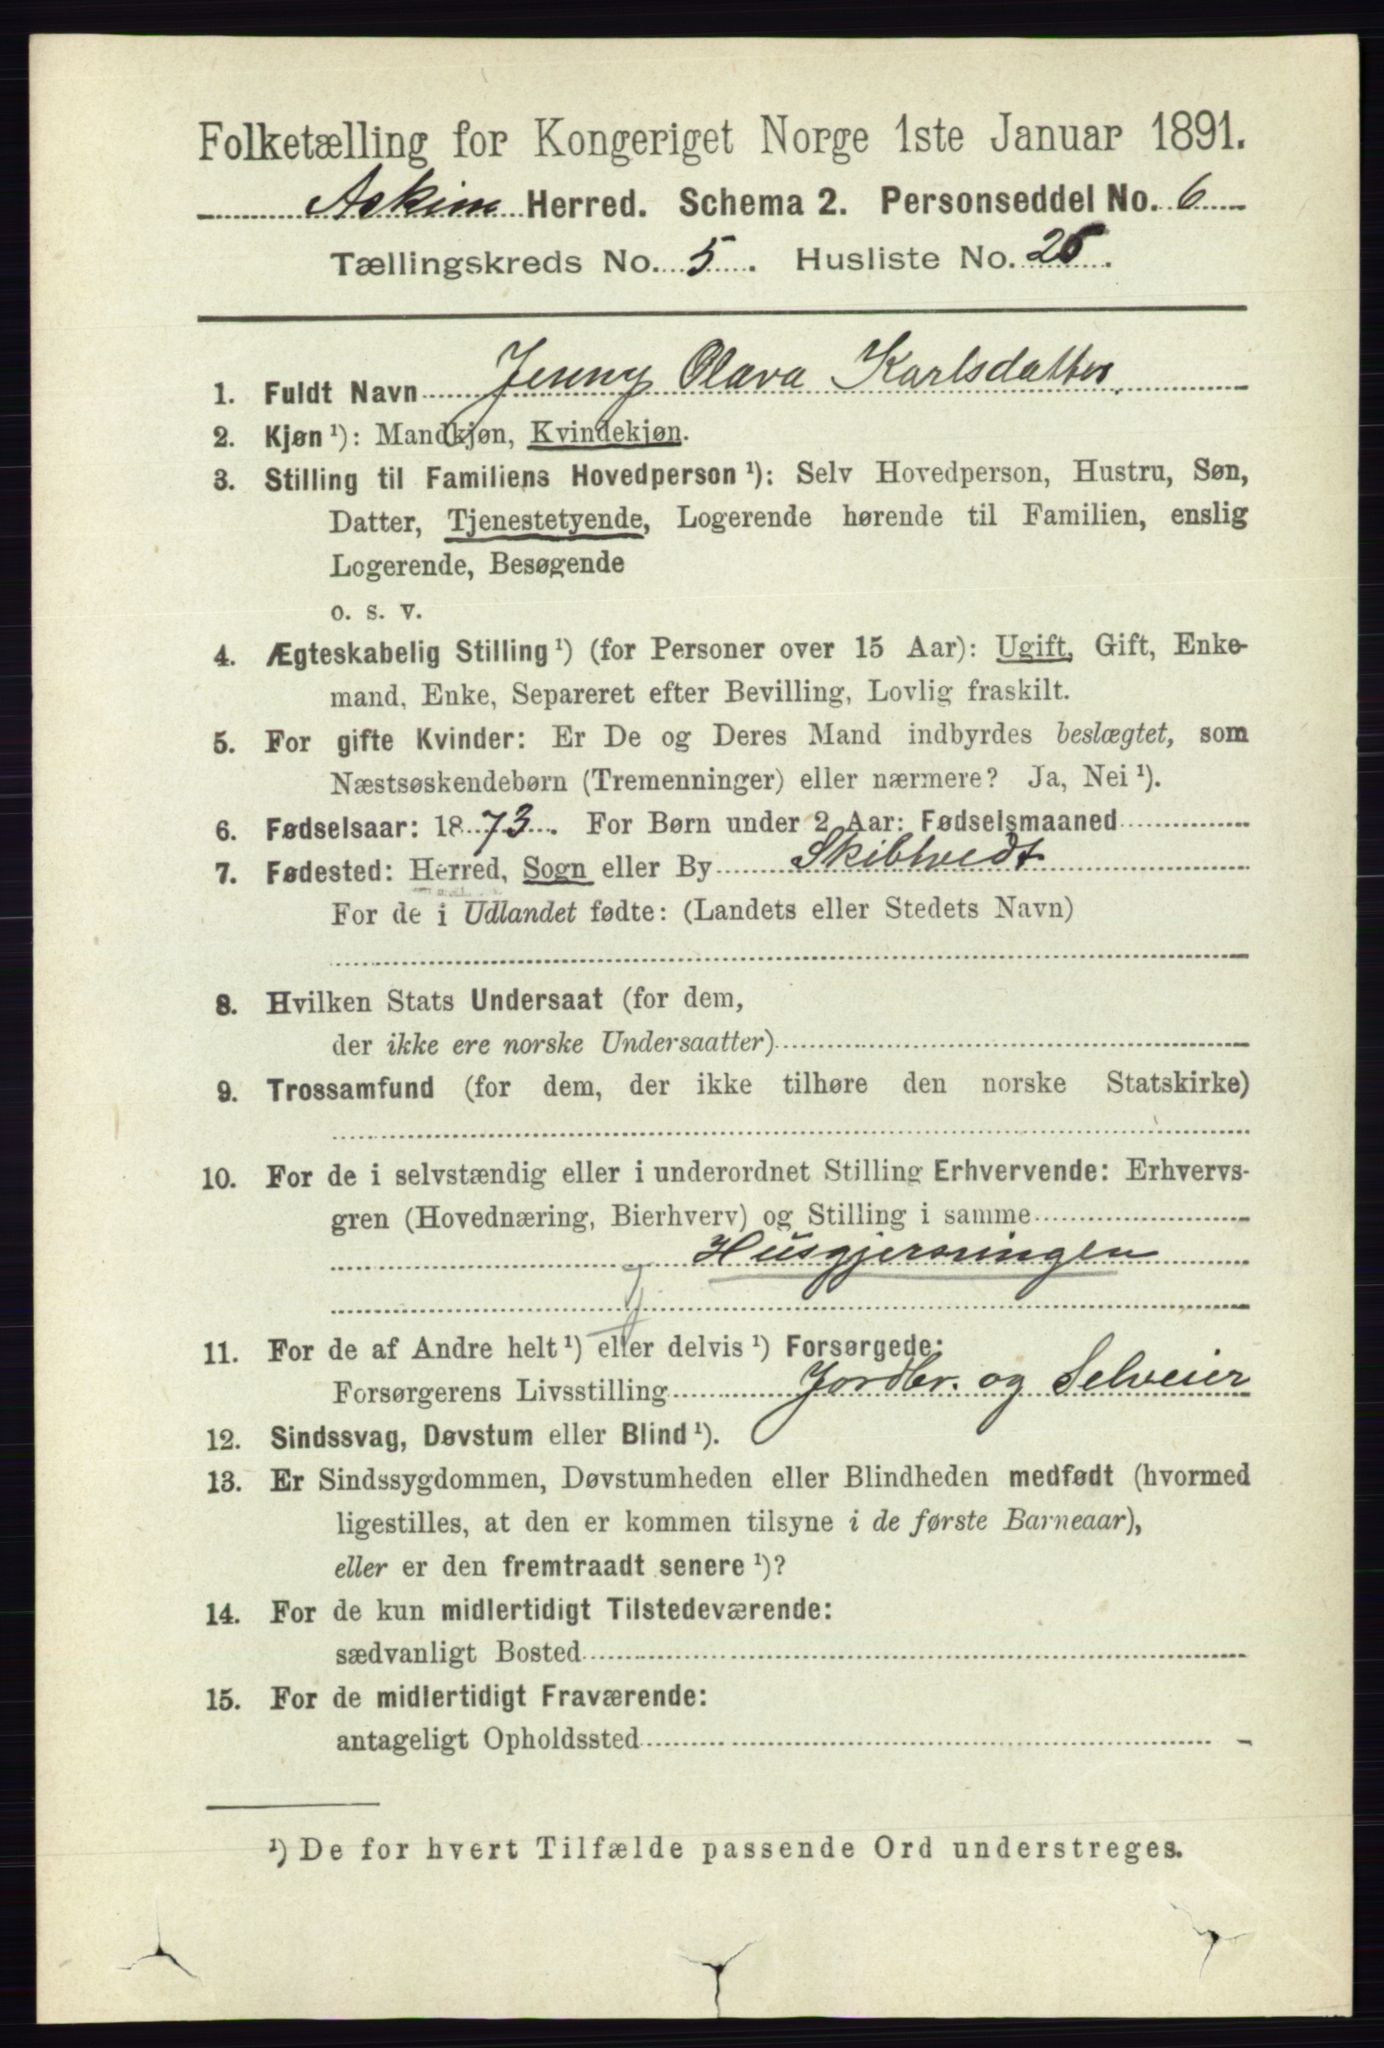 Folketælling for Kongeriget Norge 1ste Januar 1891.
Askim Herred. Schema 2. Personseddel No. 6
Tællingskreds No. 5. Husliste No. 26.
1. Fuldt Navn Jenny Olava Karlsdatter.
2. Kjøn ¹): Mandkjøn, Kvindekjøn.
3. Stilling til Familiens Hovedperson ¹): Selv Hovedperson, Hustru, Søn,
Datter, Tjenestetyende, Logerende hørende til Familien, enslig
Logerende, Besøgende
o. s. v.
4. Ægteskabelig Stilling ¹) (for Personer over 15 Aar): Ugift, Gift, Enke-
mand, Enke, Separeret efter Bevilling, Lovlig fraskilt.
5. For gifte Kvinder: Er De og Deres Mand indbyrdes beslægtet, som
Næstsøskendebørn (Tremenninger) eller nærmere? Ja, Nei ¹).
6. Fødselsaar: 1873. For Børn under 2 Aar: Fødselsmaaned
7. Fødested: Herred, Sogn eller By Skibtvedt
For de i Udlandet fødte: (Landets eller Stedets Navn)
8. Hvilken Stats Undersaat (for dem,
der ikke ere norske Undersaatter)
9. Trossamfund (for dem, der ikke tilhøre den norske Statskirke)
10. For de i selvstændig eller i underordnet Stilling Erhvervende: Erhvervs-
gren (Hovednæring, Bierhverv) og Stilling i samme
Husgjerningen
11. For de af Andre helt ¹) eller delvis ¹) Forsørgede:
Forsørgerens Livsstilling Jordbr. og Selveier
12. Sindssvag, Døvstum eller Blind ¹).
13. Er Sindssygdommen, Døvstumheden eller Blindheden medfødt (hvormed
ligestilles, at den er kommen tilsyne i de første Barneaar),
eller er den fremtraadt senere ¹)?
14. For de kun midlertidigt Tilstedeværende:
sædvanligt Bosted
15. For de midlertidigt Fraværende:
antageligt Opholdssted
¹) De for hvert Tilfælde passende Ord understreges.